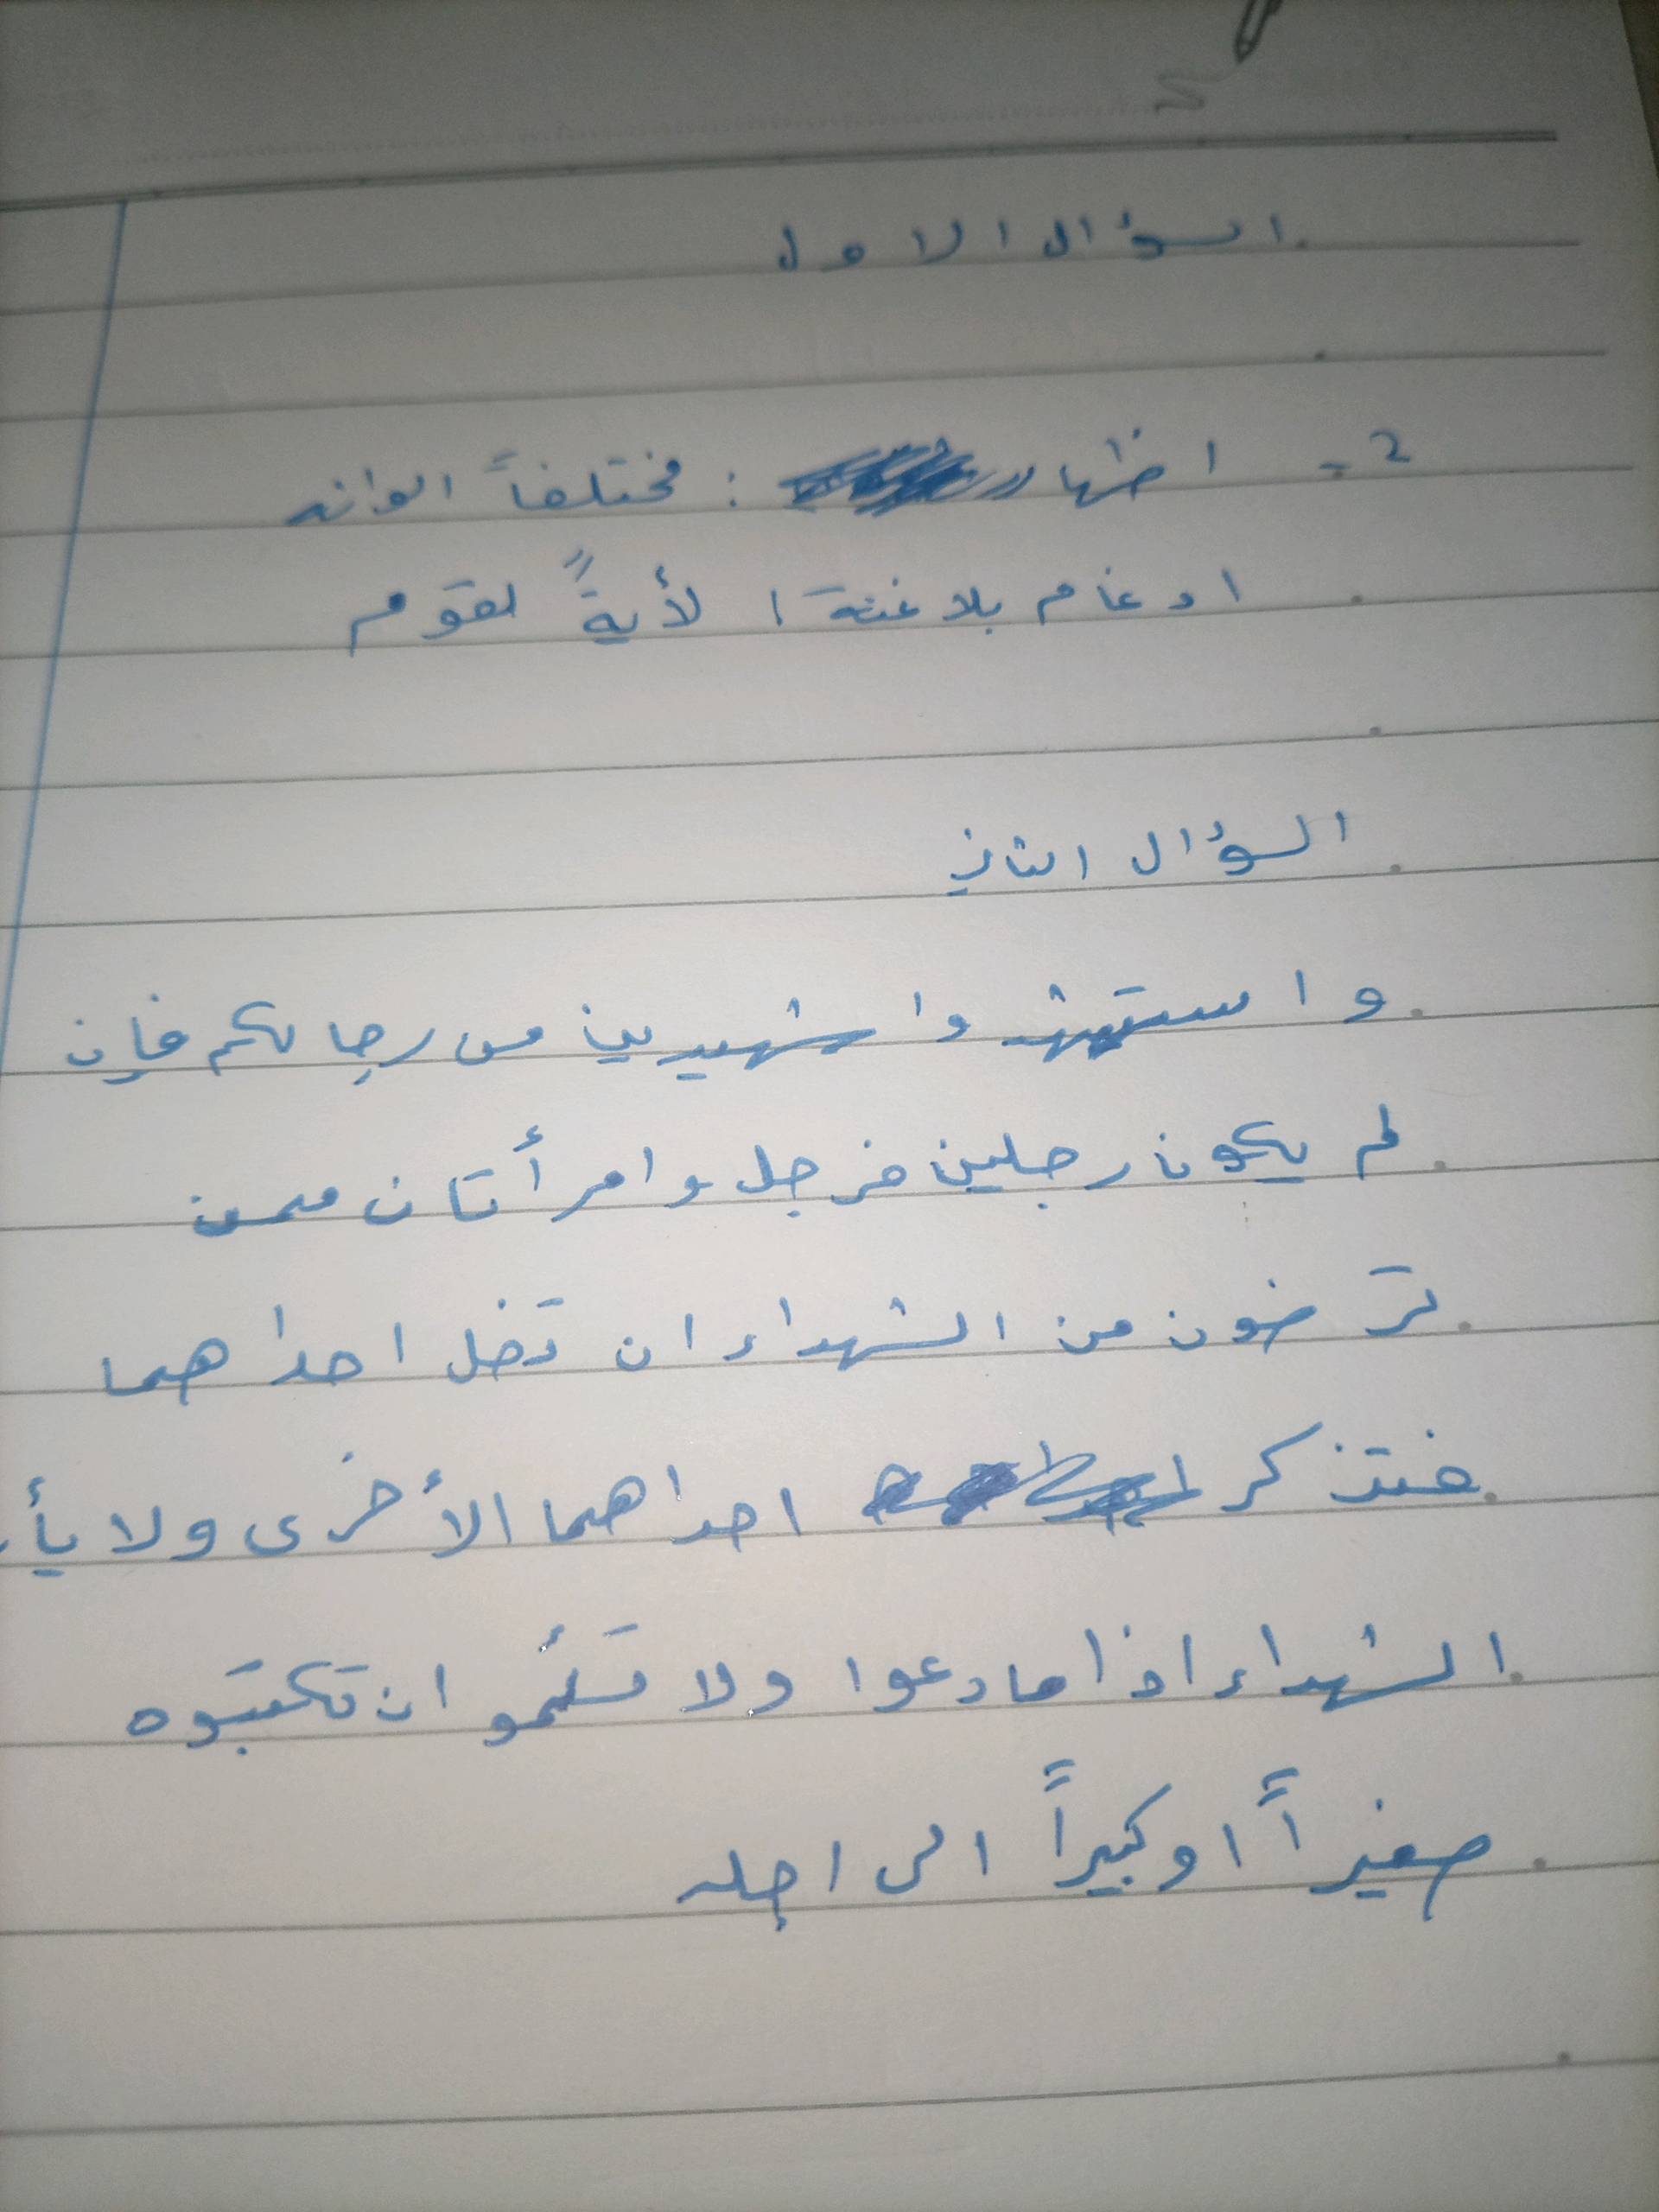 السؤال الاول
2- اظهار : مختلفاً الوانه
ادغام بلا غنة : لأيةً لقوم
السؤال الثاني
واستشهدوا شهيدين من رجالكم فإن
لم يكونا رجلين فرجل وامرأتان ممن
ترضون من الشهداء ان تضل احداهما
فتذكر احداهما الأخرى ولا يأ
الشهداء اذا ما دعوا ولا تسئمو ان تكتبوه
صغيراً او كبيراً الى اجله